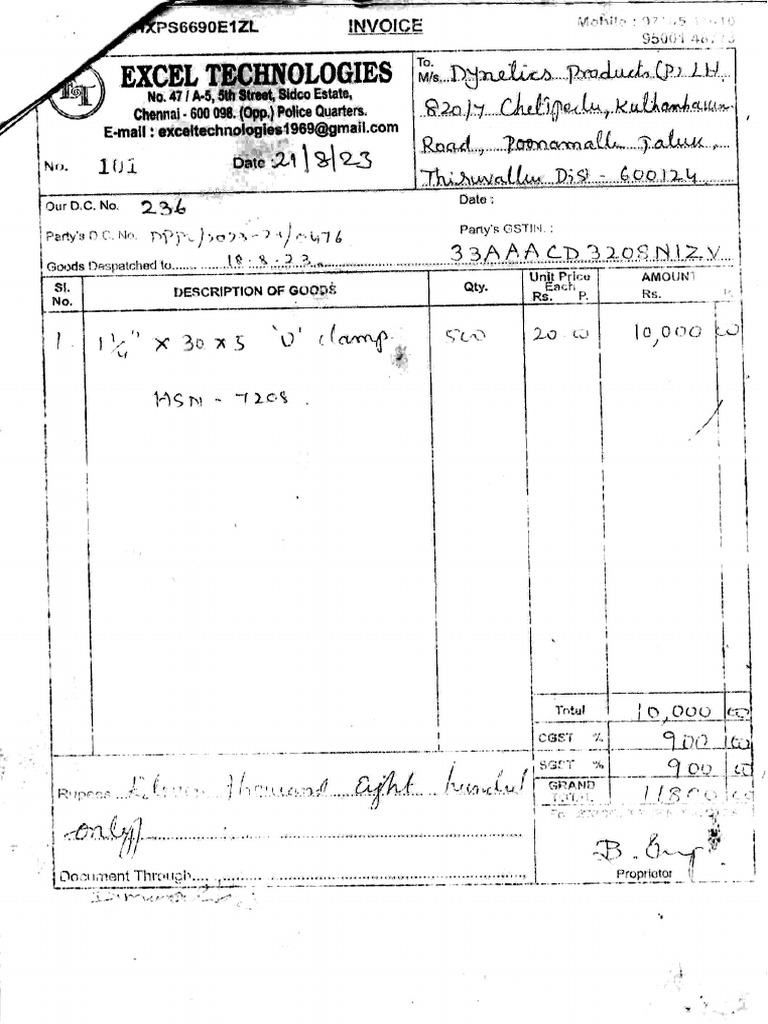 HXPS6690E1ZL
INVOICE
EXCEL TECHNOLOGIES
No. 47 / A-5, 5th Street, Sidco Estate,
Chennai - 600 098. (Opp.) Police Quarters.
E-mail : exceltechnologies1969@gmail.com
No. 101 Date : 21/8/23
To.
M/s. Dynetics Products (P) Ltd
820/7 Chettipedu,
Road, Poonamalle Taluk,
Thiruvallur Dist - 600124
Our D.C. No. 236 Date :
Party's D.C. No. Party's GSTIN. :
33AAACD3208N1ZV
Goods Despatched to 18.8.23
Sl. No. DESCRIPTION OF GOODS Qty. Unit Price Each Rs. P. AMOUNT Rs. P.
1. 1 1/4" x 30 x 5 'U' clamp 500 20.00 10,000 00
HSN - 7208.
Total 10,000 00
CGST % 900 00
SGST % 900 00
GRAND TOTAL 11800 00
Rupees Eleven thousand Eight hundred
only
Document Through
Proprietor